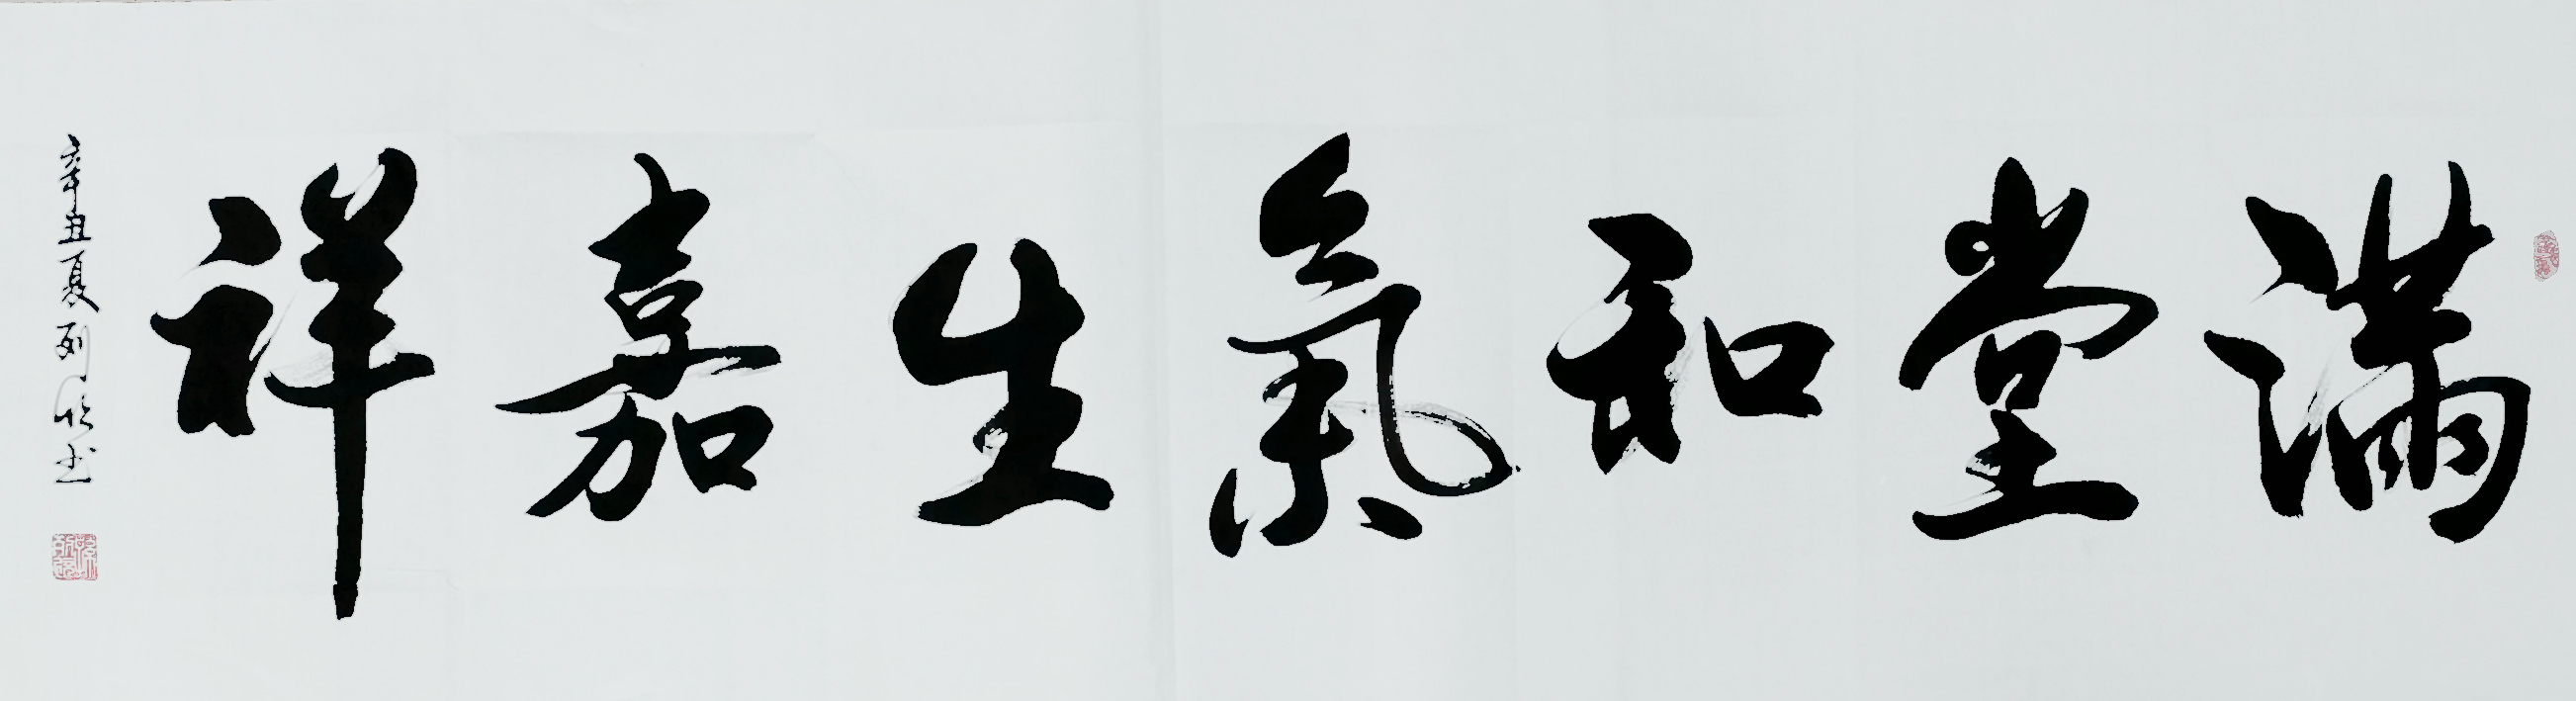 滿堂和氣生嘉祥
辛丑夏
书